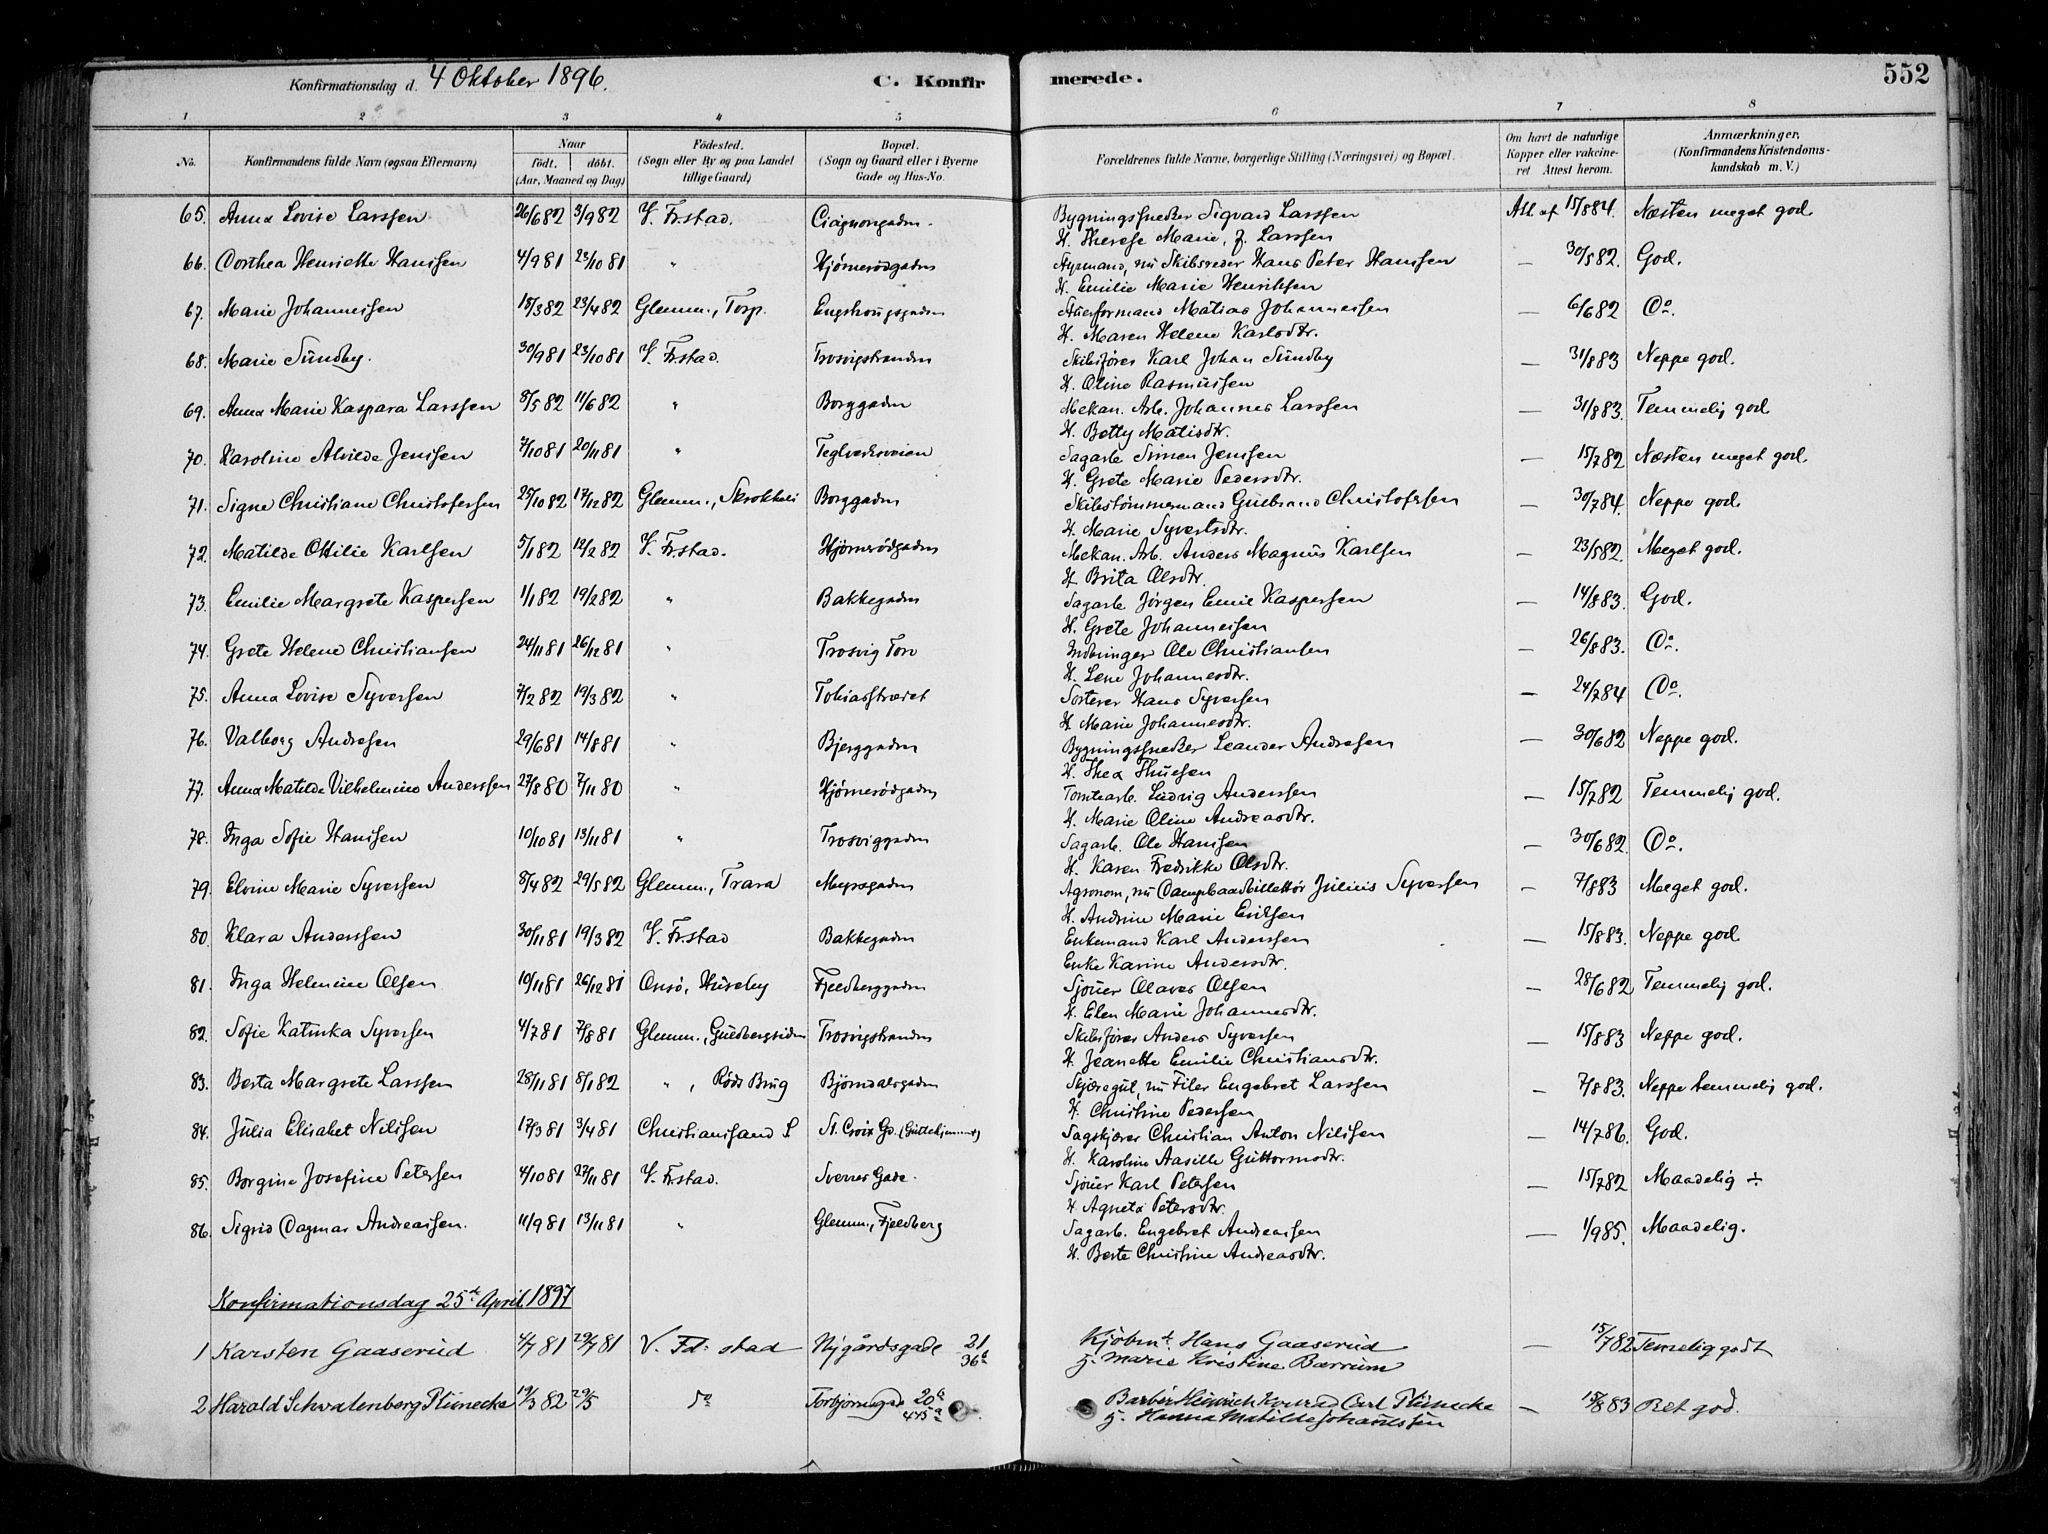 Konfirmationsdag d. 4 Oktober 1896. C. Konfirmerede. 552
1 2 3 4 5 6 7 8
No. Konfirmandens fulde Navn (ogsaa Efternavn) Naar født. døbt. (Aar, Maaned og Dag) Fødested. (Sogn eller By og paa Landet tillige Gaard) Bopæl. (Sogn og Gaard eller i Byerne Gade og Hus-No. Forældrenes fulde Navne, borgerlige Stilling (Næringsvei) og Bopæl. Om havt de naturlige Kopper eller vakcineret Attest herom. Anmærkninger. (Konfirmandens Kristendomskundskab m. V.)
65. Anna Lovise Larssen 26/6 82 3/9 82 V. Fr.stad. Cicignongaden. Bygningssnedker Sigvard Larssen Att. af 15/8 84. Næsten meget god.
H. Therese Marie, f. Larssen
66. Dorthea Henriette Hanssen 4/9 81 23/10 81 " Hjørnerødgaden Styrmand, nu Skibsreder Hans Peter Hanssen — 30/5 82. God.
H. Emilie Marie Henriksen
67. Marie Johannessen 18/3 82 23/4 82 Glemm., Torp. Enghougsgaden Stuerformand Matias Johannessen — 6/6 82 Do.
H. Maren Helene Karlsdtr.
68. Marie Sundby. 30/9 81 23/10 81 V. Fr.stad. Trosvigstranden Skibsfører Karl Johan Sundby — 31/8 83 Neppe god.
H. Oline Rasmussen
69. Anna Marie Kaspara Larssen 8/5 82 11/6 82 " Borggaden Mekan. Arb. Johannes Larssen — 31/8 83. Temmelig god
H. Betty Matisdtr.
70. Karoline Alvilde Jenssen 7/10 81 20/11 81 " Teglverksveien Sagarb. Simen Jenssen — 15/7 82 Næsten meget god.
H. Grete Marie Pedersdtr.
71. Signe Christiane Christofersen 25/10 82 17/12 82 Glemm., Skrokkeli Borggaden Skibstømmermand Gulbrand Christofersen — 30/7 84. Neppe god.
H. Marie Syvertsdtr.
72. Matilde Ottilie Karlsen 5/1 82 19/2 82 V. Fr.stad. Hjørnerødgaden Mekan. Arb. Anders Magnus Karlsen — 23/5 82. Meget god.
H. Brita Olsdtr.
73. Emilie Margrete Kaspersen 1/1 82 19/2 82 " Bakkegaden Sagarb. Jørgen Emil Kaspersen — 14/8 83. God.
H. Grete Johannessen
74. Grete Helene Christiansen 24/11 81 26/12 81 " Trosvig Torv Indbringer Ole Christiansen — 26/8 83. Do.
H. Lene Johannesdtr.
75. Anna Lovise Syversen 7/2 82 19/3 82 " Tobiasstrædet Sorterer Hans Syversen — 24/7 84 Do.
H. Marie Johannesdtr.
76. Valborg Andresen 29/6 81 14/8 81 " Bjerggaden Bygningssnedker Leander Andresen — 30/6 82 Neppe god.
H. Thea Thuesen
77. Anna Matilde Vilhelmine Anderssen 27/8 80 7/11 80 " Hjørnerødgaden Tomtearb. Ludvig Anderssen — 15/7 82 Temmelig god.
H. Marie Oline Andreasdtr.
78. Inga Sofie Hanssen 10/10 81 13/11 81 " Trosviggaden Sagarb. Ole Hanssen — 30/6 82. Do.
H. Karen Fredrikke Olsdtr.
79. Elvine Marie Syversen 8/4 82 29/5 82 Glemm., Trara Møysgaden Agronom, nu Dampbaadbillettør Julius Syversen — 7/8 83 Meget god.
H. Andrine Marie Eriksen
80. Klara Anderssen 30/11 81 19/3 82 V. Fr.stad Bakkegaden Enkemand Karl Anderssen — 15/8 83. Neppe god
Enke Karine Andersdtr.
81. Inga Helmine Olsen 19/11 81 26/12 81 Onsø, Huseby Fjeldberggaden Sjøuer Olaves Olsen — 28/6 82 Temmelig god.
H. Elen Marie Johannesdtr.
82. Sofie Katinka Syversen 4/7 81 7/8 81 Glemm., Guldbergsiden Trosvigstranden Skibsfører Anders Syversen — 15/8 83 Neppe god.
H. Jeanette Emilie Christiansdtr.
83. Berta Margrete Larssen 28/11 81 8/1 82 ", Røds Brug Bjørndalsgaden Skjæregut, nu Filer Engebret Larssen — 7/8 83. Neppe temmelig god.
H. Christine Pedersen
84. Julia Elisabet Nilssen 17/3 81 3/4 81 Christianssand S St. Croix Gd. (Guttehjemmet) Sagskjærer Christian Anton Nilssen — 14/7 86. God.
H. Karoline Aasille Guttormsdtr.
85. Borgine Josefine Petersen 4/10 81 27/11 81 V. Fr.stad. Sverres Gade. Sjøuer Karl Petersen — 15/7 82 Maadelig ÷
H. Agneta Petersdtr.
86. Sigrid Dagmar Andreassen. 11/9 81 13/11 81 " Glemm., Fjeldberg Sagarb. Engebret Andreassen — 1/9 85. Maadelig.
H. Berte Christine Andreasdtr.
Konfirmationsdag 25de April 1897
1 Karsten Gaaserud 4/7 81 29/7 81 V. Fd: stad Nygårdsgade 21/36a Kjøbmd. Hans Gaaserud 15/7 82 Temelig godt
g. Marie Kristine Bærrum
2 Harald Schvalenberg Plünecke 19/3 82 29/5 do Torbjørnsgade 20a 475a Barbér Heinrich Konrad Carl Plünecke — 15/8 83 Ret god.
g. Hanna Matilde Johannessen